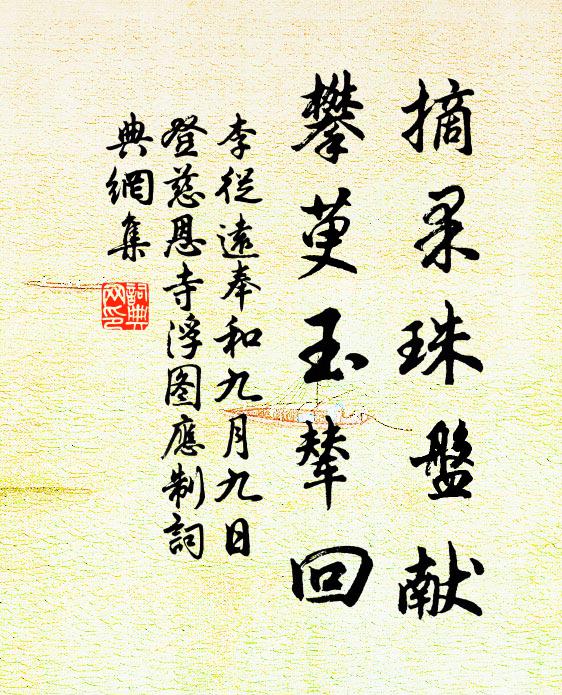 摘果珠盤献
攀萸玉輦回
李從遠奉和九月九日
登慈恩寺浮图應制詞
典網集
詞典
网印